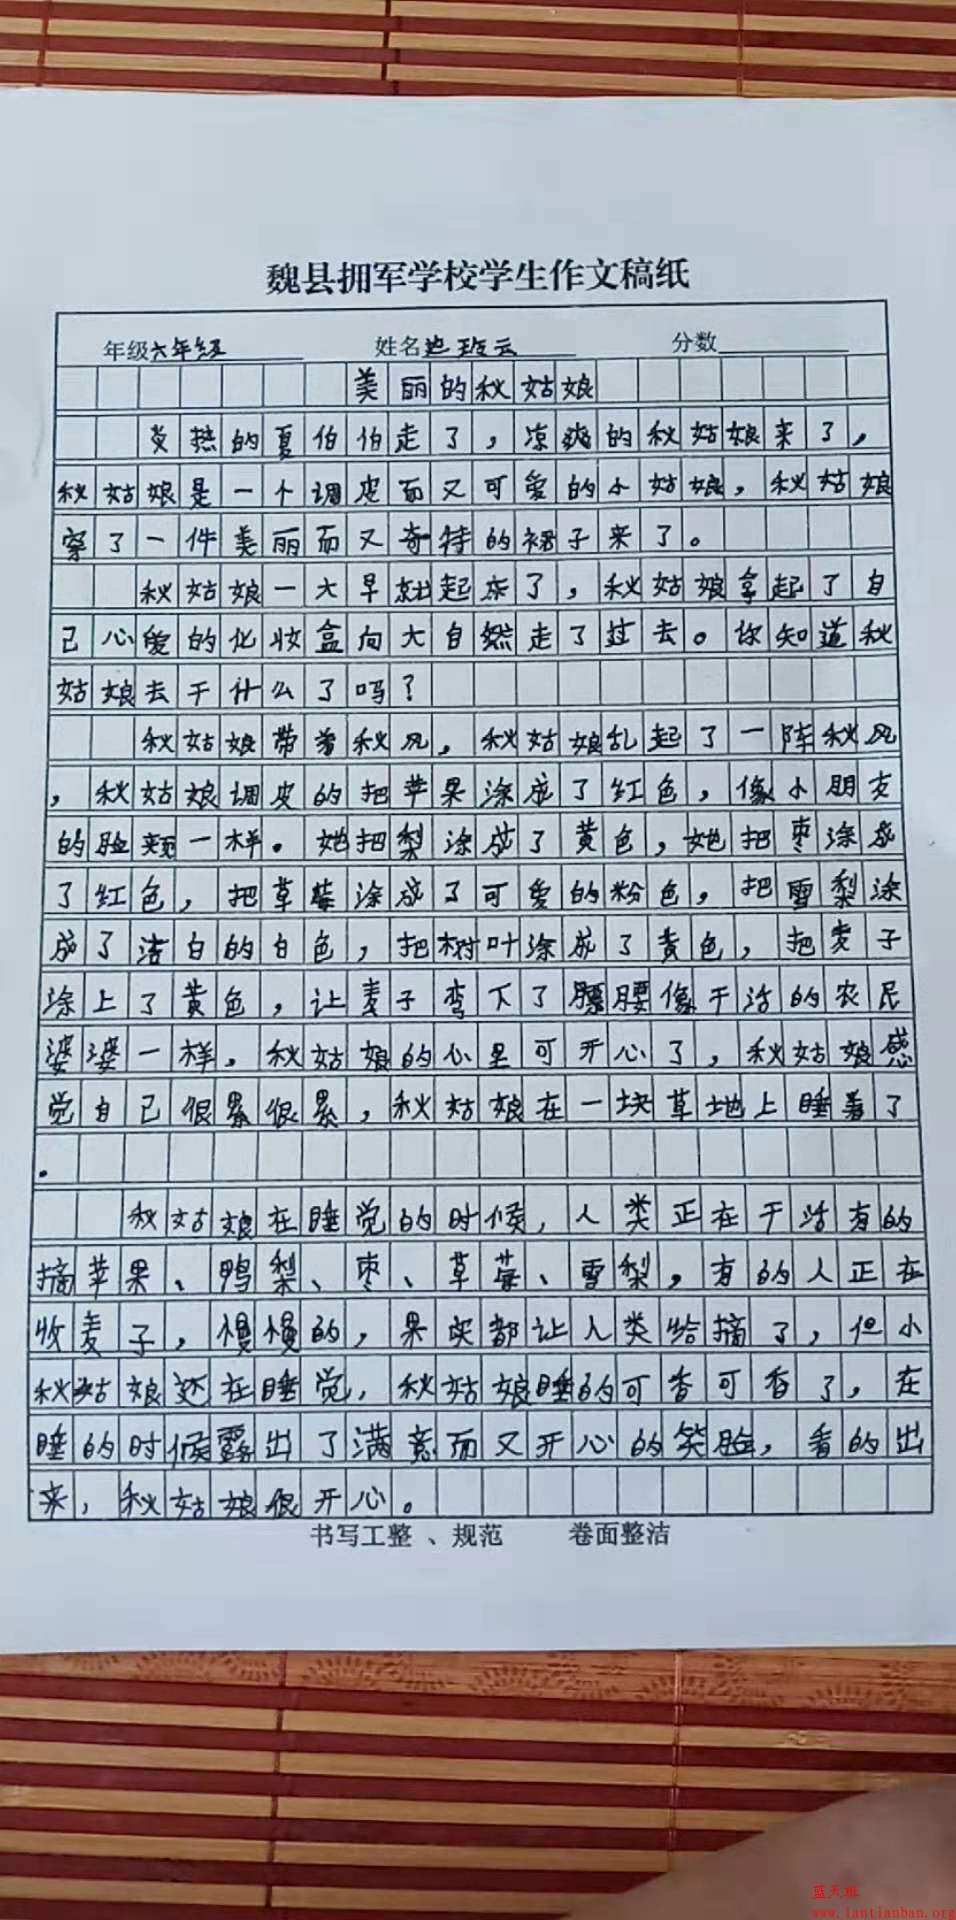 魏县拥军学校学生作文稿纸
年级六年级 姓名 班云 分数
美丽的秋姑娘
炎热的夏伯伯走了，凉爽的秋姑娘来了，
秋姑娘是一个调皮而又可爱的小姑娘，秋姑娘
穿了一件美丽而又奇特的裙子来了。
秋姑娘一大早就起床了，秋姑娘拿起了自
己心爱的化妆盒向大自然走了过去。你知道秋
姑娘去干什么了吗？
秋姑娘带着秋风，秋姑娘乱起了一阵秋风
，秋姑娘调皮的把苹果涂成了红色，像小朋友
的脸颊一样。她把梨涂成了黄色，她把枣涂成
了红色，把草莓涂成了可爱的粉色，把雪梨涂
成了洁白的白色，把树叶涂成了黄色，把麦子
涂上了黄色，让麦子弯下了腰腰像干活的农民
婆婆一样，秋姑娘的心里可开心了，秋姑娘感
觉自己很累很累，秋姑娘在一块草地上睡着了
。
秋姑娘在睡觉的时候，人类正在干活有的
摘苹果、鸭梨、枣、草莓、雪梨，有的人正在
收麦子，慢慢的，果实都让人类给摘了，但小
秋姑娘还在睡觉，秋姑娘睡的可香可香了，在
睡的时候露出了满意而又开心的笑脸，看的出
来，秋姑娘很开心。
书写工整 、规范 卷面整洁
蓝天班
www.lantianban.org